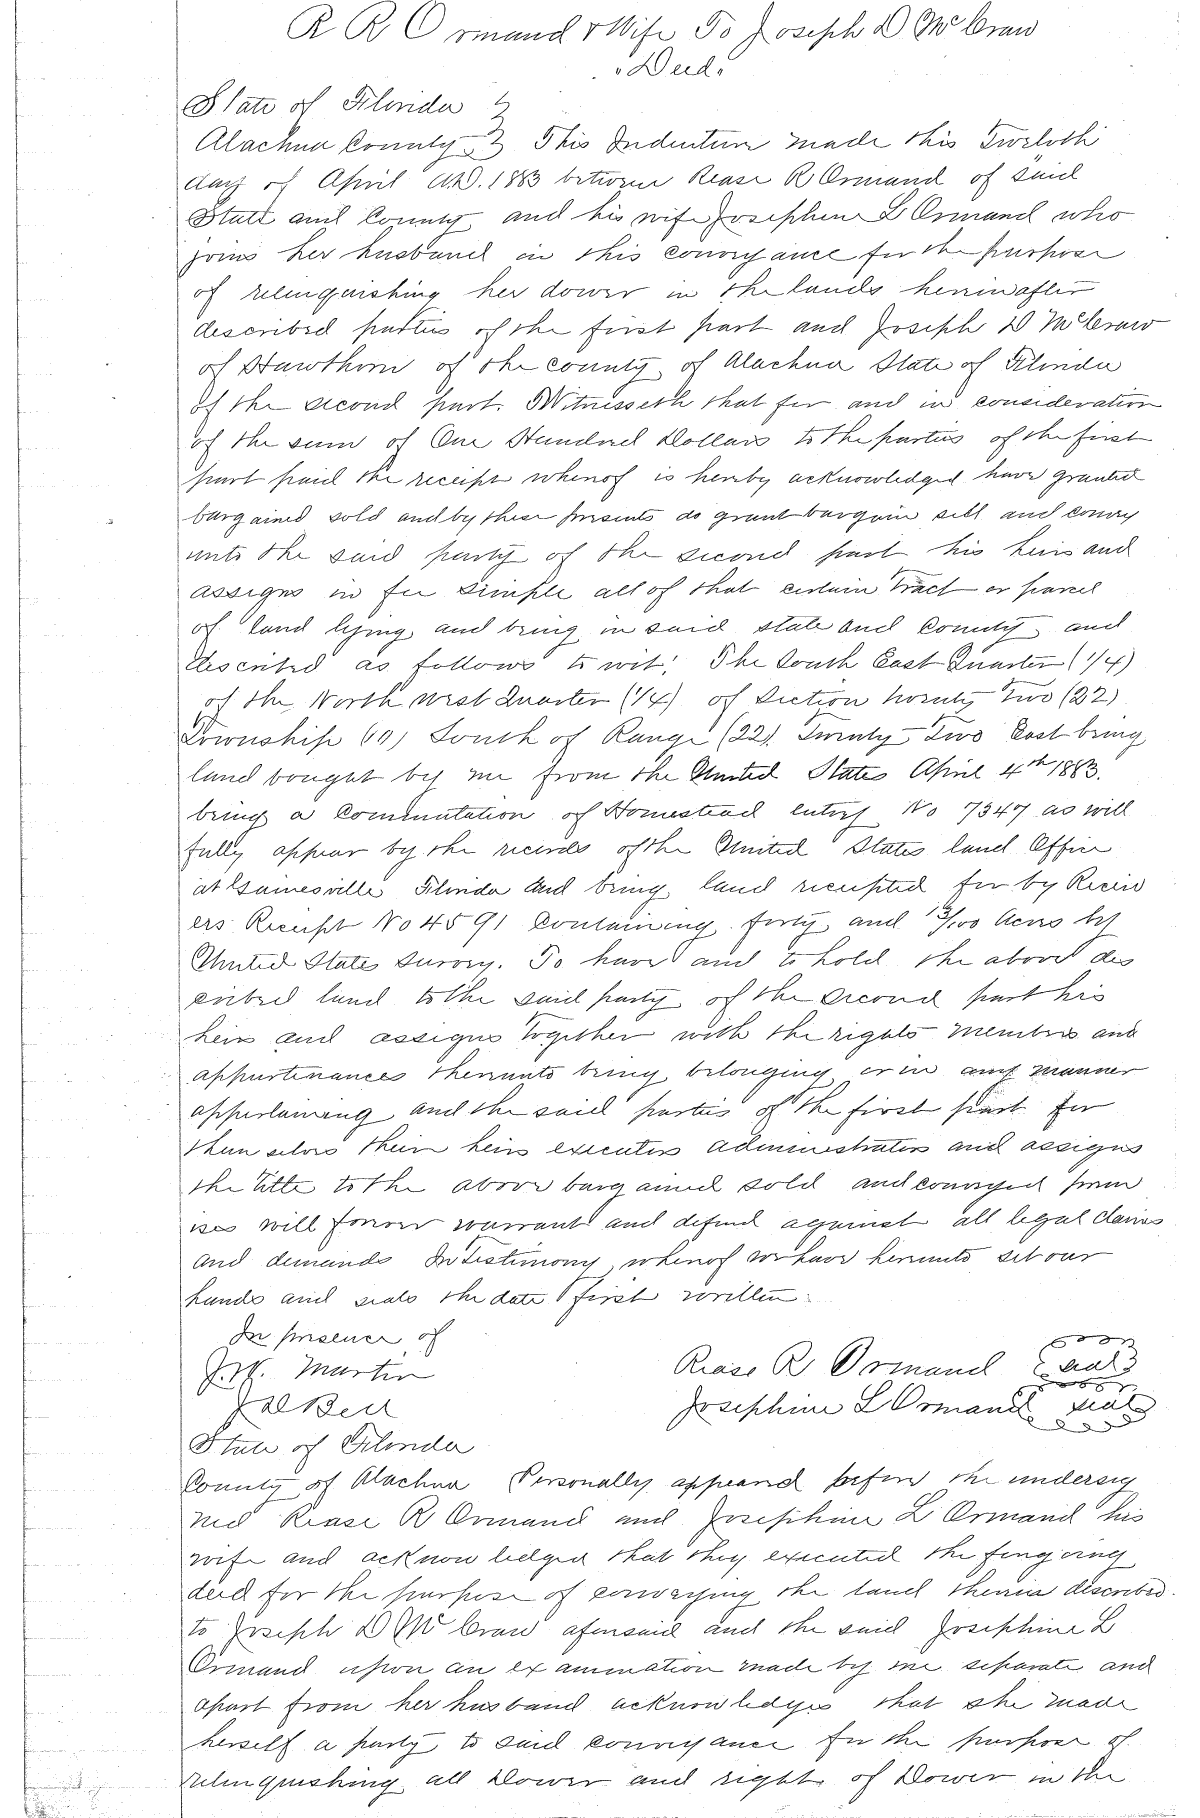 R R Ormand & Wife To Joseph D McCraw
"Deed"
State of Florida
Alachua County This Indenture made this Twelvth
day of April A.D. 1883 between Rease R Ormand of said
State and County and his wife Josephine L Ormand who
joins her husband in this conveyance for the purpose
of relinquishing her dower in the lands hereinafter
described parties of the first part and Joseph D McCraw
of Hawthorn of the county of Alachua State of Florida
of the second part. Witnesseth that for and in consideration
of the sum of One Hundred Dollars to the parties of the first
part paid the receipt whereof is hereby acknowledged have granted
bargained sold and by these presents do grant bargain sell and convey
unto the said party of the second part his heirs and
assigns in fee simple all of that certain tract or parcel
of land lying and being in said state and County and
described as follows to wit; The South East Quarter (1/4)
of the North west Quarter (1/4) of Section twenty Two (22)
Township South of Range (22) Twenty Two East being
land bought by me from the United States April 4th 1883.
being a Commutation of Homestead entry No 7347 as will
fully appear by the records of the United States land Office
at Gainesville Florida and being land receipted for by Receiv
ers Receipt No 4591 Containing forty and 13/100 Acres by
United States survey. To have and to hold the above des
cribed land to the said party of the second part his
heirs and assigns together with the rights members and
appurtenances thereunto being belonging or in any manner
appertaining and the said parties of the first part for
themselves their heirs executors administrators and assigns
the title to the above bargained sold and conveyed prem
ises will forever warrant and defend against all legal claims
and demands In testimony whereof we have hereunto set our
hands and seals the date first written.
In presence of
J. W. Martin Rease R Ormand seal
Bell Josephine L Ormand seal
State of Florida
County of Alachua Personally appeared before the undersig
ned Rease R Ormand and Josephine L Ormand his
wife and acknowledged that they executed the foregoing
deed for the purpose of conveying the land therein described
to Joseph D McCraw aforesaid and the said Josephine L
Ormand upon an examination made by me separate and
apart from her husband acknowledges that she made
herself a party to said conveyance for the purpose of
relinquishing all Dower and right of Dower in the